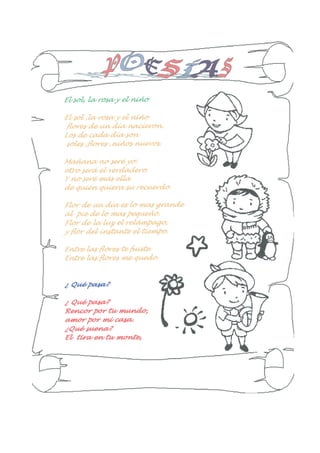 POESIAS
El sol, la rosa y el niño
El sol ,la rosa y el niño
flores de un día nacieron.
Los de cada día son
soles ,flores ,niños nuevos.
Mañana no seré yo
otro será el verdadero.
Y no seré más alla
de quien quiera su recuerdo.
Flor de un día es lo mas grande
al pie de lo mas pequeño.
Flor de la luz el relámpago,
y flor del instante el tiempo.
Entre las flores te fuiste
Entre las flores me quedo.
¿ Qué pasa?
¿ Qué pasa?
Rencor por tu mundo,
amor por mi casa.
¿Qué suena?
El tiro en tu monte,